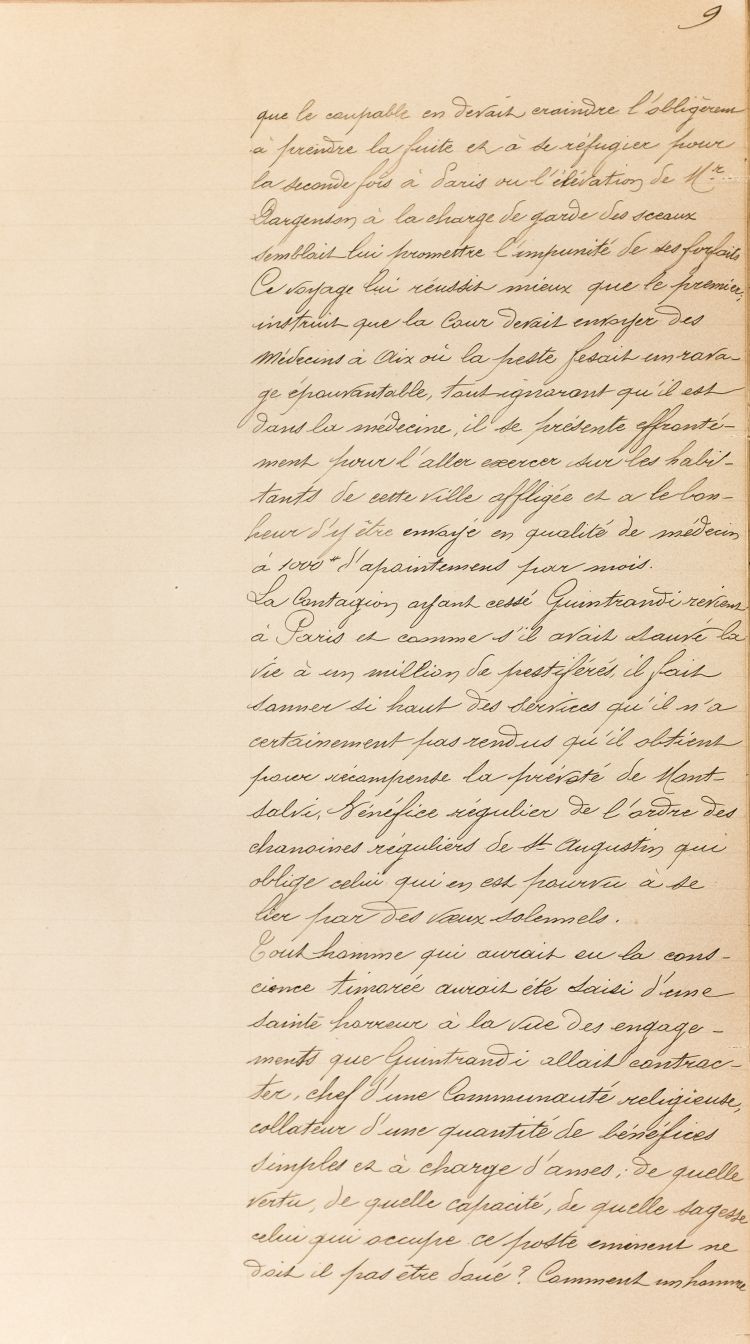 9
que le coupable en devait craindre l'obligèrent
à prendre la fuite et à se réfugier pour
la seconde fois à Paris ou l'élévation de Mr
Dargenson à la charge de garde des sceaux
semblait lui promettre l'impunité de ses forfaits
Ce voyage lui réussit mieux que le premier,
instruit que la Cour devait envoyer des
Médecins à Aix où la peste fesait un rava-
ge épouvantable, tout ignorant qu'il est
dans la médecine, il se présente effronté-
ment pour l'aller exercer sur les habi-
tants de cette ville affligée et a le bon-
heur d'y être envoyé en qualité de médecin
à 1000# d'apointemens par mois.
La Contagion ayant cessé Guintrandi revient
à Paris et comme s'il avait sauvé la
vie à un million de pestiférés, il fait
sonner si haut des services qu'il n'a
certainement pas rendus qu'il obtient
pour récompense la prévoté de Mont-
salvi, Bénéfice régulier de l'ordre des
chanoines réguliers de St Augustin qui
oblige celui qui en est pourvu à se
lier par des vœux solennels.
Tout homme qui aurait eu la cons-
cience timorée aurait été saisi d'une
sainte horreur à la vue des engage-
ments que Guintrandi allait contrac-
ter, chef d'une Communauté religieuse,
collateur d'une quantité de bénéfices
simples et à charge d'ames; de quelle
vertu, de quelle capacité, de quelle sagesse
celui qui occupe ce poste eminent ne
doit il pas être doué? Comment un homme